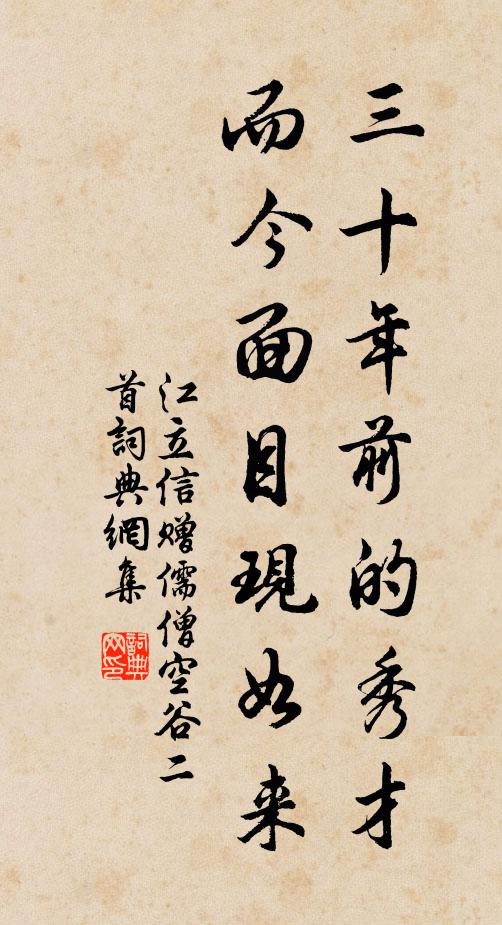 三十年前的秀才
而今面目現如来
江立信贈儒僧空谷二
首詞典網集
詞典
网印